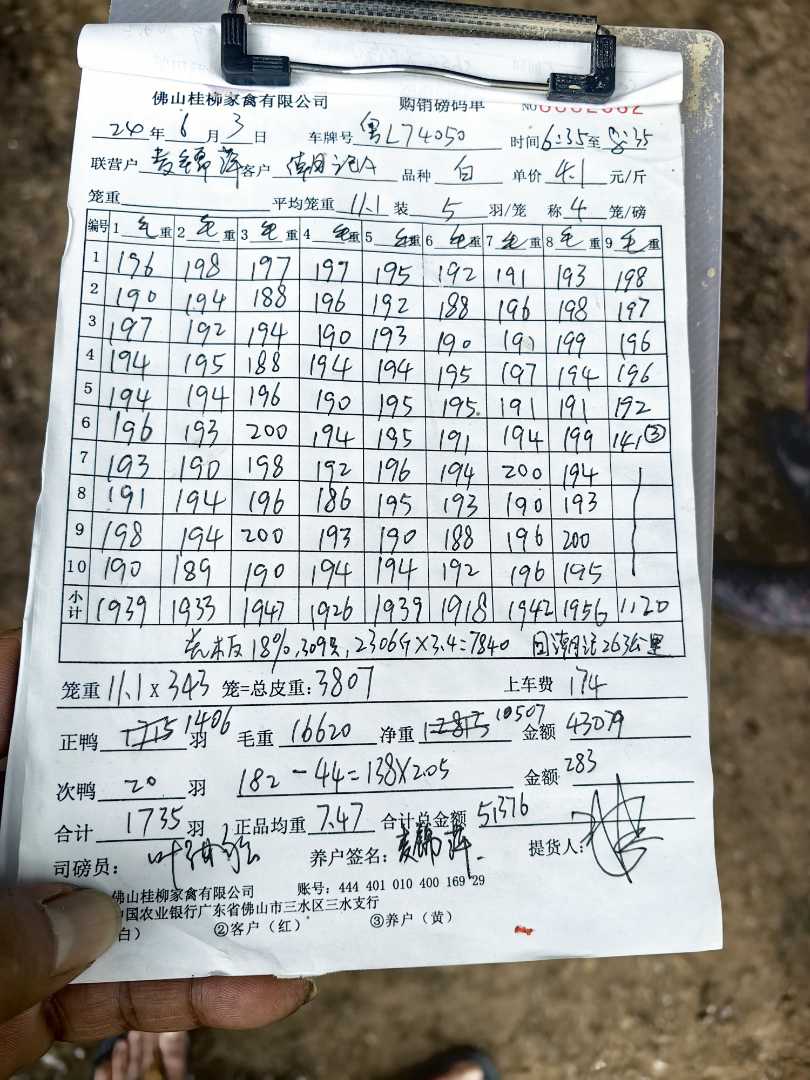 佛山桂柳家禽有限公司 购销磅码单 NO
24年6月3日 车牌号 粤L74050 时间6:35至8:35
联营户 麦锦萍 客户 品种 白 单价 4.1 元/斤
笼重 平均笼重 11.1 装 5 羽/笼 称 4 笼/磅
编号 1 毛重 2 毛重 3 毛重 4 毛重 5 毛重 6 毛重 7 毛重 8 毛重 9 毛重
1 196 198 197 197 195 192 191 193 198
2 190 194 188 196 192 188 196 198 197
3 197 192 194 190 193 190 191 199 196
4 194 195 188 194 194 195 197 194 196
5 194 194 196 190 195 195 191 191 192
6 196 193 200 194 195 191 194 199 141③
7 193 190 198 192 196 194 200 194
8 191 194 196 186 195 193 190 193
9 198 194 200 193 190 188 196 200
10 190 189 190 194 194 192 196 195
小计 1939 1933 1947 1926 1939 1918 1942 1956 1120
18%,309只,2306斤×3.4=7840 回潮记263公里
笼重 11.1×343 笼=总皮重:3807 上车费 174
正鸭 1715 1406 羽 毛重 16620 净重 12813 10507 金额 43079
次鸭 20 羽 182-44=138×2.05 金额 283
合计 1735 羽 正品均重 7.47 合计总金额 51376
司磅员: 养户签名: 麦锦萍 提货人:
佛山桂柳家禽有限公司 账号: 444 401 010 400 169 29
中国农业银行广东省佛山市三水区三水支行
白) ②客户(红) ③养户(黄)